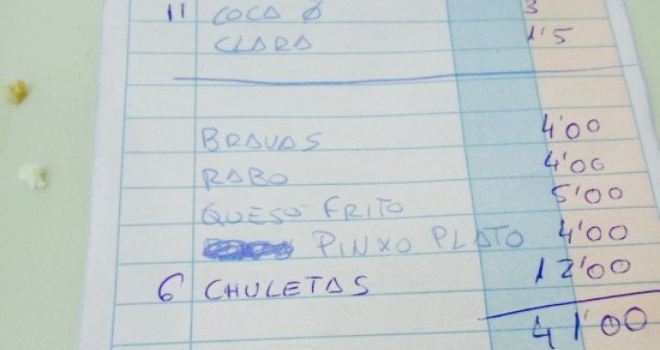 11 COCA Ø 3
CLARA 1'5
BRAVAS 4'00
RABO 4'00
QUESO FRITO 5'00
PINXO PLATO 4'00
6 CHULETAS 12'00
41'00